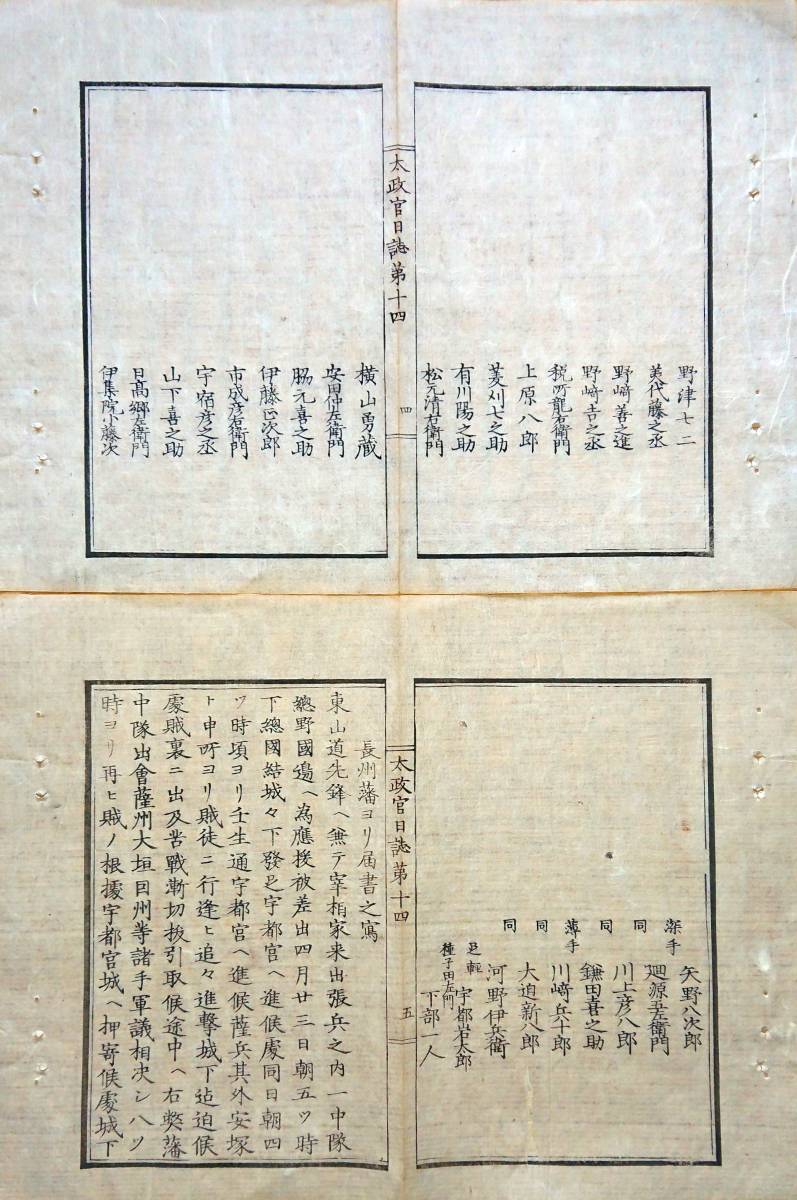 野津七二
美代藤之丞
野﨑善之進
野﨑吉之丞
税所龍右衛門
上原八郎
菱刈七之助
有川陽之助
松元清右衛門
太政官日誌第十四
四
横山勇蔵
安田仲左衛門
脇元喜之助
伊藤正次郎
市成彦右衛門
宇宿彦之丞
山下喜之助
日高郷左衛門
伊集院小藤次
矢野八次郎
深手 廻源五左衛門
同 川上彦八郎
同 鎌田喜之助
薄手 川﨑兵十郎
同 大迫新八郎
同 河野伊兵衛
足軽 宇都岩太郎
種子田左門 下部一人
太政官日誌第十四
五
長州藩ヨリ届書之寫
東山道先鋒ヘ無テ宰相家来出張兵之内一中隊
總野國邊ヘ為應援被差出四月廿三日朝五ツ時
下總國結城々下發足宇都宮ヘ進候處同日朝四
ツ時頃ヨリ壬生通宇都宮ヘ進候薩兵其外安塚
ト申所ヨリ賊徒ニ行逢ヒ追々進撃城下迠迫候
處賊裏ニ出及苦戰漸切抜引取候途中ヘ右弊藩
中隊出會薩州大垣因州等諸手軍議相决シ八ツ
時ヨリ再ヒ賊ノ根據宇都宮城ヘ押寄候處城下